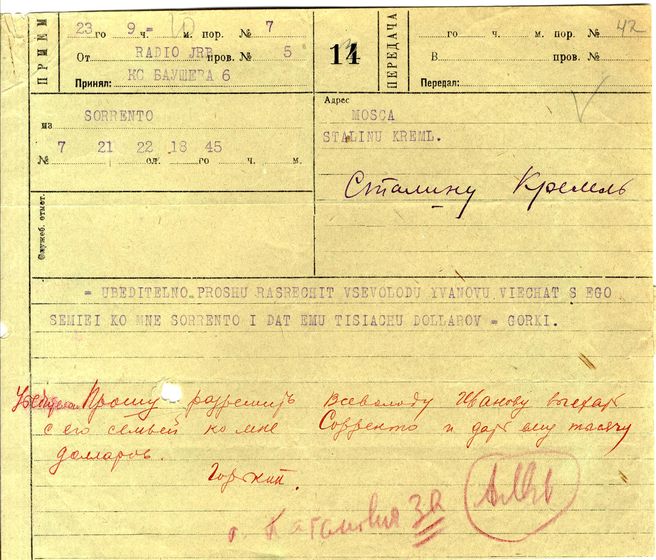 42
ПРИЕМ
23 го 9 ч. 20 м. пор. № 7
От RADIO JRR пров. № 5
Принял: КС БАУШЕВА 6
14
ПЕРЕДАЧА
го ч. м. пор. №
В пров. №
Передал:
из SORRENTO
№ 7 21 сл. 22 го 18 ч. 45 м.
Служеб. отмет.
Адрес
MOSCA
STALINU KREML.
Сталину Кремль
= UBEDITELNO PROSHU RASRECHIT VSEVOLODU YVANOVU VIECHAT S EGO
SEMIEI KO MNE SORRENTO I DAT EMU TISIACHU DOLLAROV = GORKI.
Прошу разрешить Всеволоду Иванову выехать
с его семьей ко мне Сорренто и дать ему тысячу
долларов.
Горький.
т. Каганович за